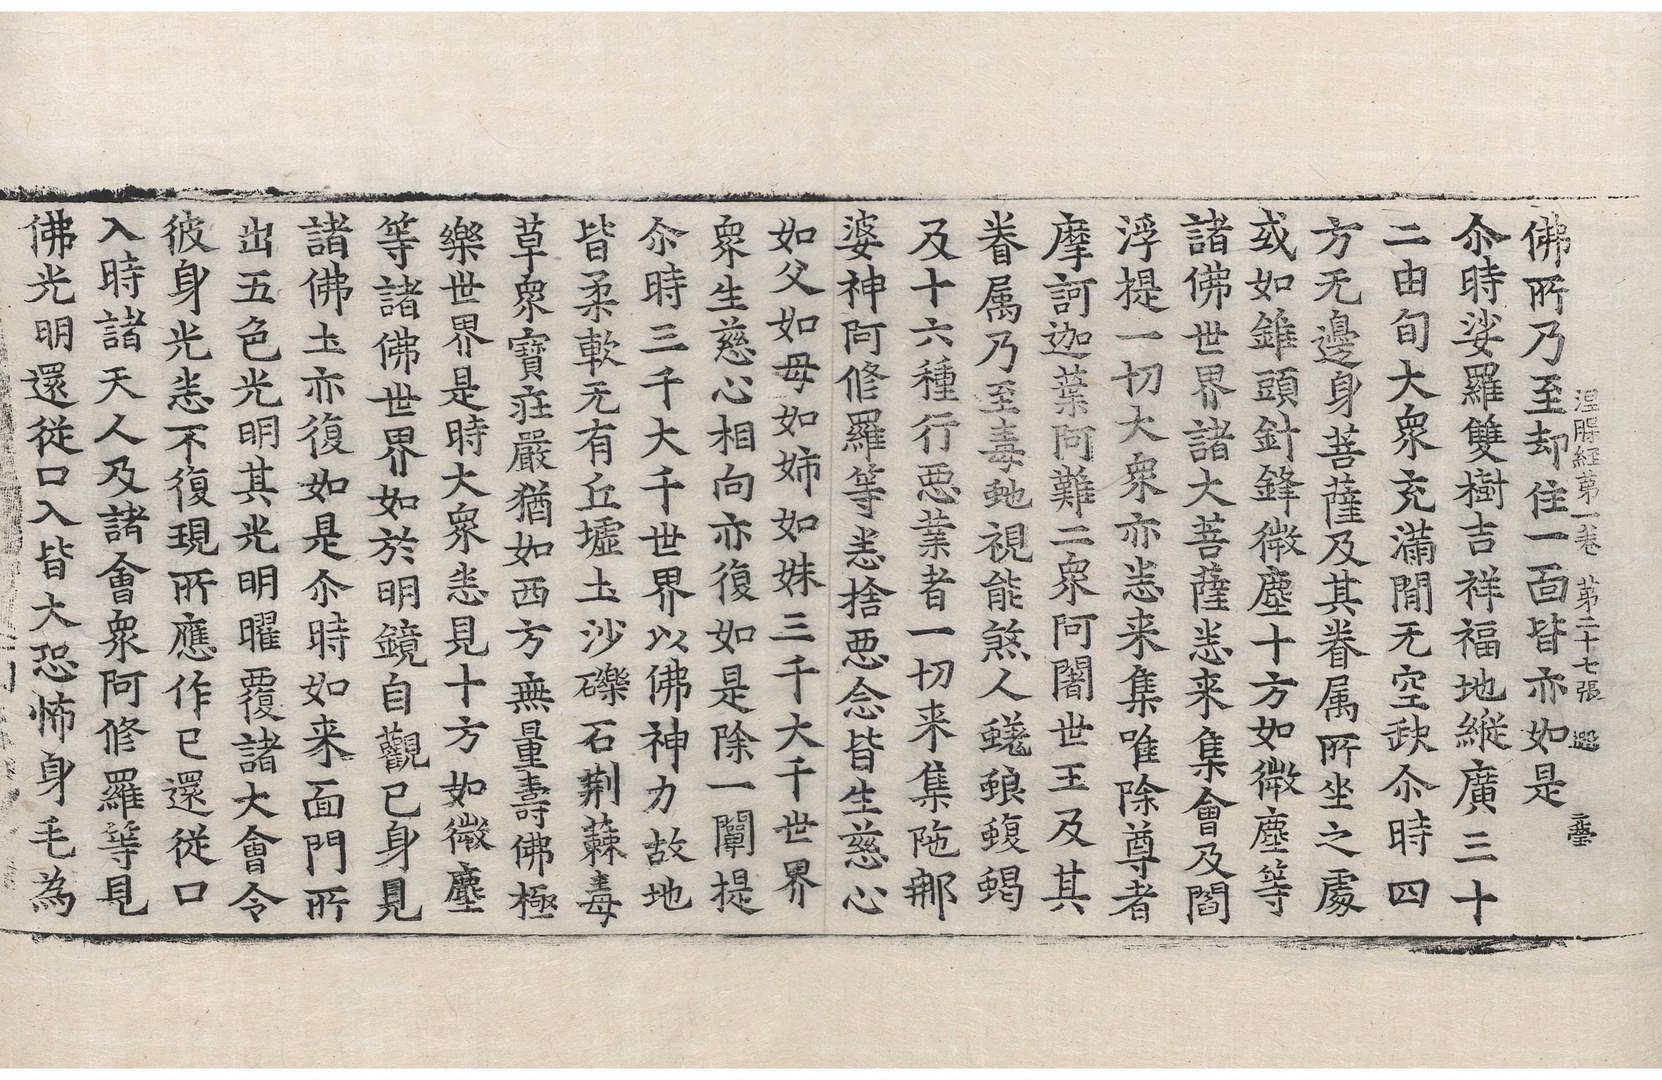 涅槃經第一卷 第二十七張 遐
佛所乃至却住一面皆亦如是
尒時娑羅雙樹吉祥福地縱廣三十
二由旬大衆充滿閒无空缺尒時四
方无邊身菩薩及其眷属所坐之處
或如錐頭針鋒微塵十方如微塵等
諸佛世界諸大菩薩悉来集會及閻
浮提一切大衆亦悉来集唯除尊者
摩訶迦葉阿難二衆阿闍世王及其
眷属乃至毒虵視能煞人蜣蜋蝮蝎
及十六種行惡業者一切来集陁那
婆神阿修羅等悉捨惡念皆生慈心
如父如母如姉如妹三千大千世界
衆生慈心相向亦復如是除一闡提
尒時三千大千世界以佛神力故地
皆柔軟无有丘墟土沙礫石荆蕀毒
草衆寳莊嚴猶如西方無量壽佛極
樂世界是時大衆悉見十方如微塵
等諸佛世界如於明鏡自觀已身見
諸佛土亦復如是尒時如来面門所
出五色光明其光明曜覆諸大會令
彼身光悉不復現所應作已還従口
入時諸天人及諸會衆阿修羅等見
佛光明還従口入皆大恐怖身毛為